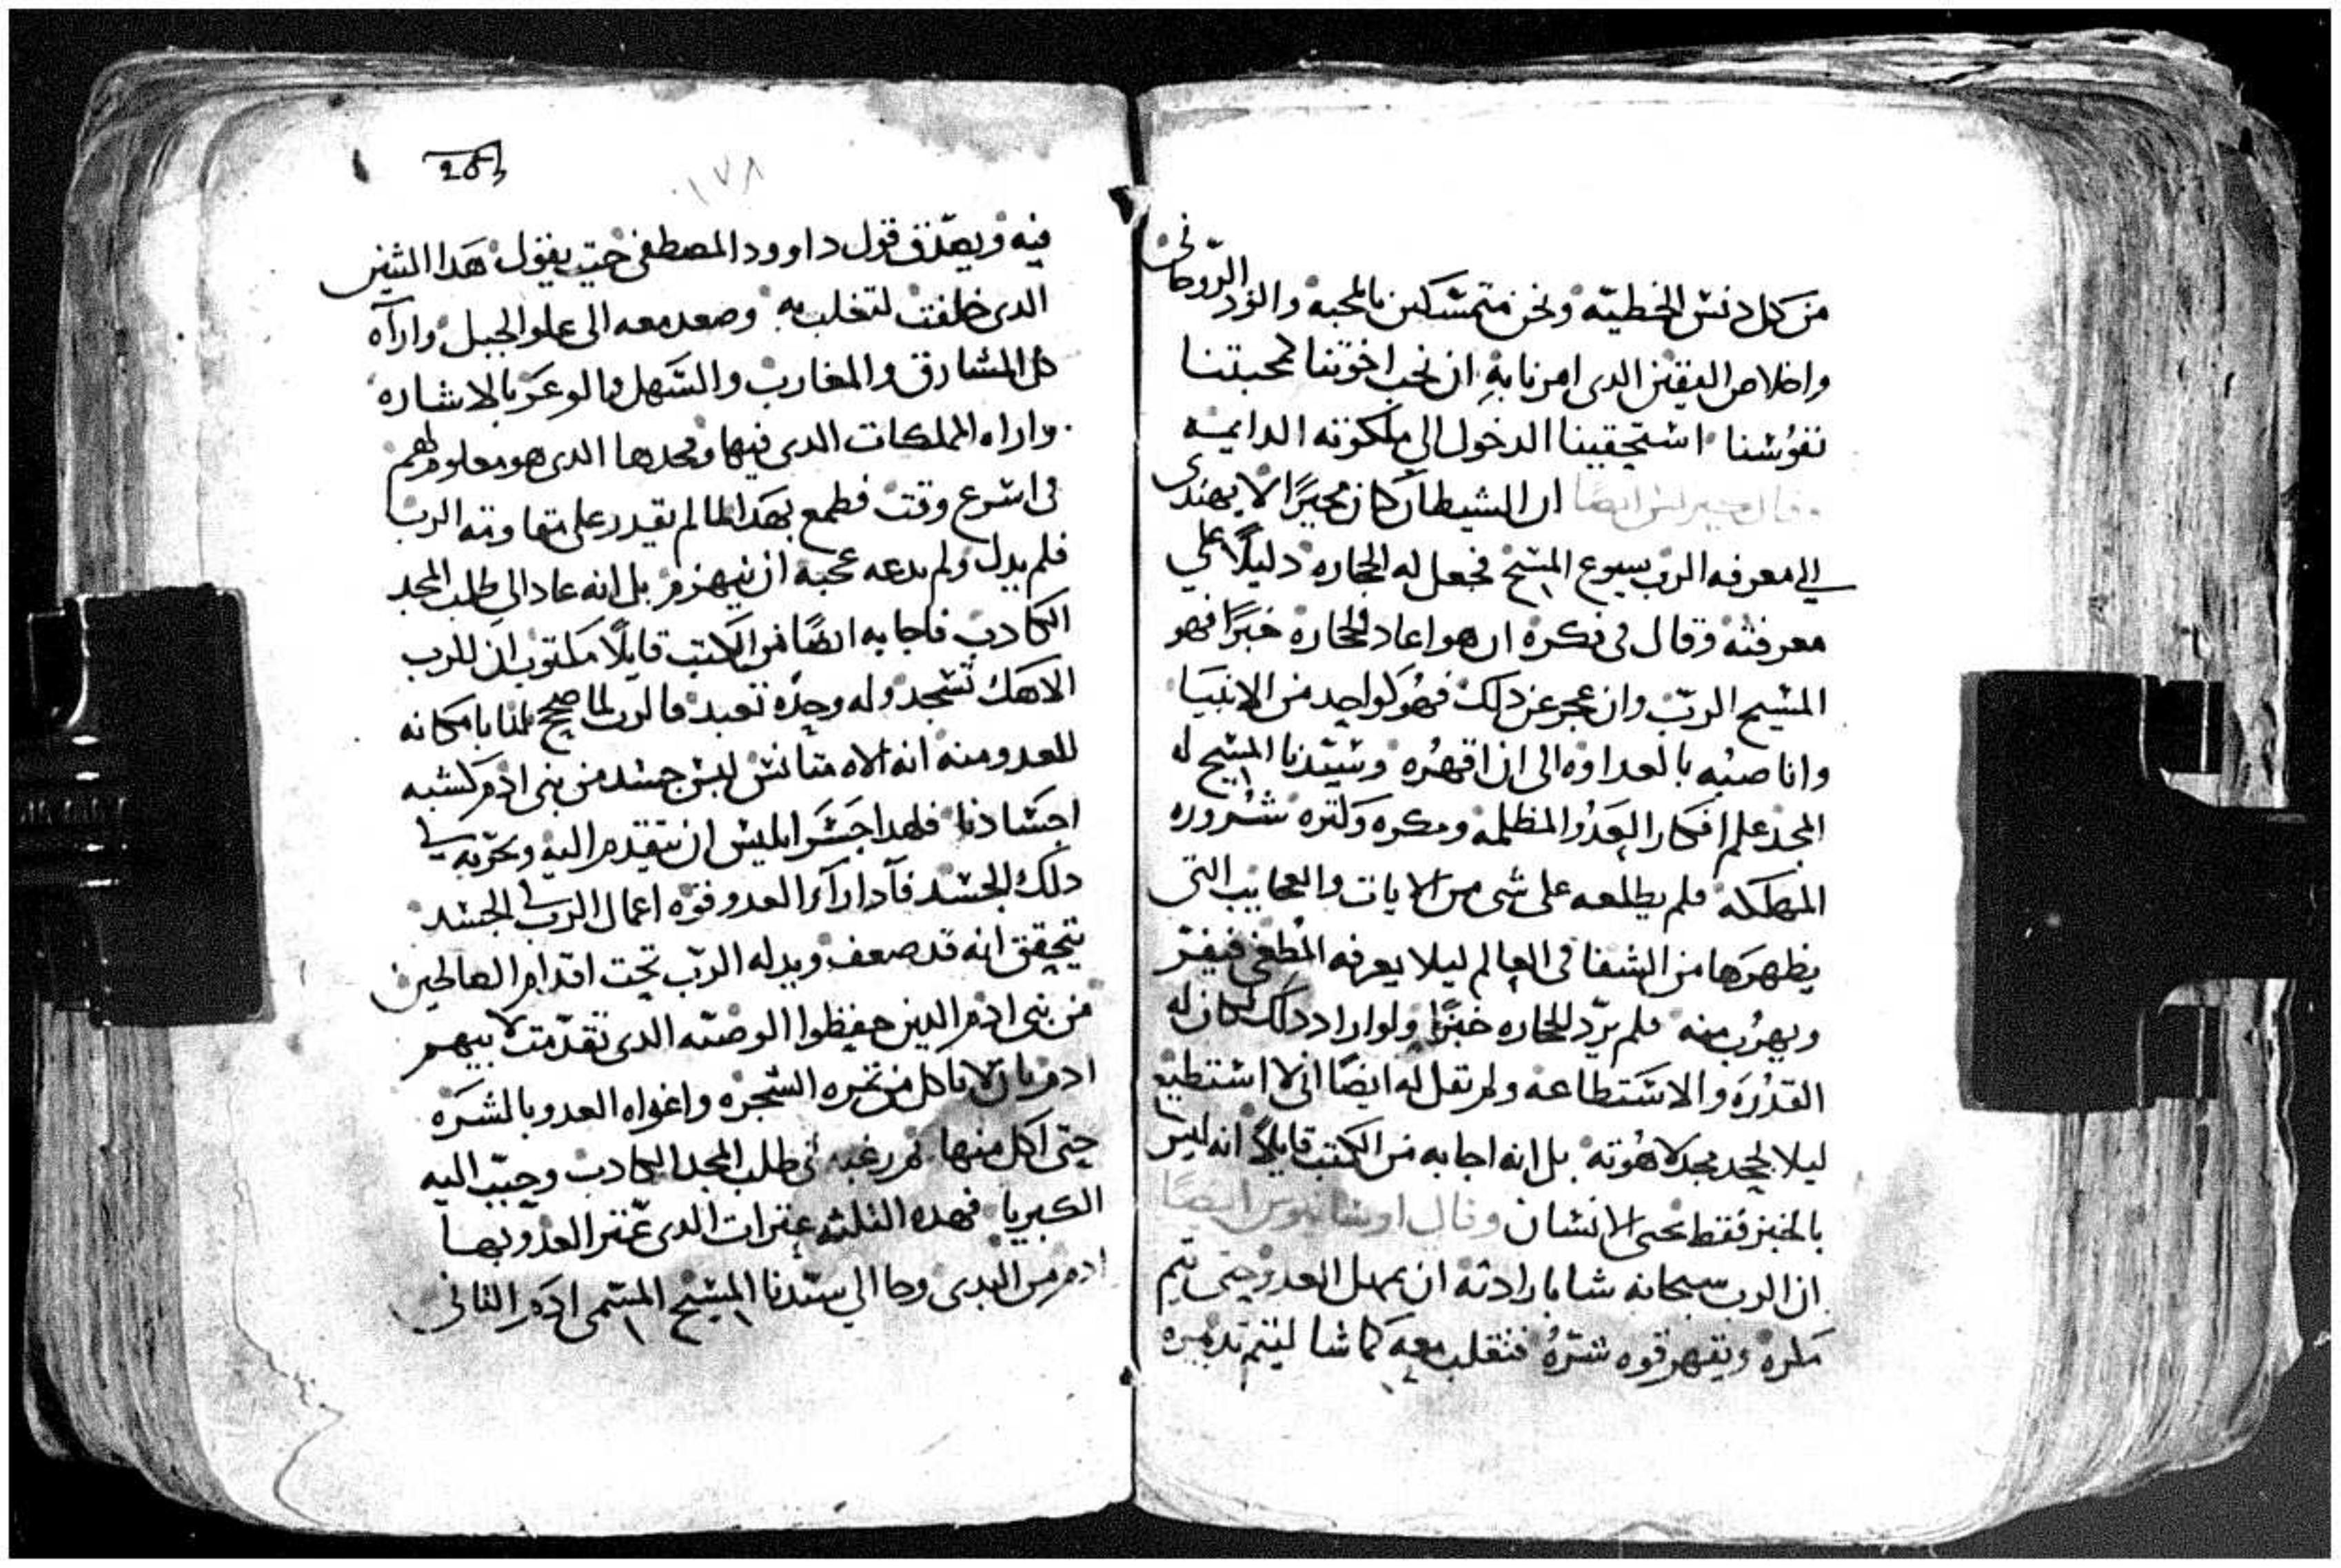 من كل دنس الخطيه ونحن متمسكين بالمحبه والود الروحانى
واخلاص اليقين الدى امرنا به ان نحب اخوتنا كمحبتنا
نفوسنا استحقينا الدخول الى ملكوته الدايمه
وقال ايضًا ان الشيطان كان محيرًا لا يهتدى
الى معرفه الرب يسوع المسيح فجعل له الحجاره دليلًا على
معرفته وقال فى فكره ان هو اعاد الحجاره خبزًا فهو
المسيح الرب وان عجز عن دلك فهو كواحد من الانبيا
واناصبه بالعداوه الى ان اقهره وسيدنا المسيح له
المجد علم افكار العدو المظلمه ومكره وكثره شروره
المهلكه فلم يطلعه على شى من الايات والعجايب التى
يظهرها من الشفا فى العالم ليلا يعرفه المطغى فيفر
ويهرب منه فلم يرد الحجاره خبزًا ولو اراد دلك لكان له
القدره والاستطاعه ولم تقل له ايضًا انى لا استطيع
ليلا يجحد مجد لاهوته بل انه اجابه من الكتب قايلًا انه ليس
بالخبز فقط يحيى الانسان وقال ايضًا
ان الرب سبحانه شا بارادته ان يمهل العدو حتى يتم
مكره ويقهر قوه شره فتقلب معه كما شا ليتم تدبيره
203
١٧٨
فيه ويصدق قول داوود المصطفى حيت يقول هدا التنين
الدى خلقت لتغلب به وصعد معه الى علو الجبل واراه
كل المشارق والمغارب والسهل والوعر بالاشاره
واراه المملكات الدى فيها ومجدها الدى هو معلوم لهم
فى اسرع وقت فطمع بهدا لما لم يقدر على مقاومته الرب
فلم يدل ولم يدعه عجبه ان ينهزم بل انه عاد الى طلب المجد
الكادب فاجابه ايضًا من الكتب قايلًا مكتوب ان للرب
الاهك تسجد وله وحده تعبد فالرب لما صحح لنا بامكانه
للعدو منه انه الاه متانس لبس جسد من بنى ادم كشبه
اجسادنا فلهدا جسر ابليس ان يتقدم اليه ويجربه فى
دلك الجسد فادا راى العدو قوه اعمال الرب فى الجسد
يتحقق انه قد ضعف ويدله الرب تحت اقدام الصالحين
من بنى ادم الدين حفظوا الوصيه الدى تقدمت لابيهم
ادم بان لا ياكل من تمره الشجره واغواه العدو بالشره
حتى اكل منها تم رغبه فى طلب المجد الكادب وحبب اليه
الكبريا فهده التلته عترات الدى عتر العدو بها
ادم من البدى وجا الى سيدنا المسيح المسمى ادم التانى